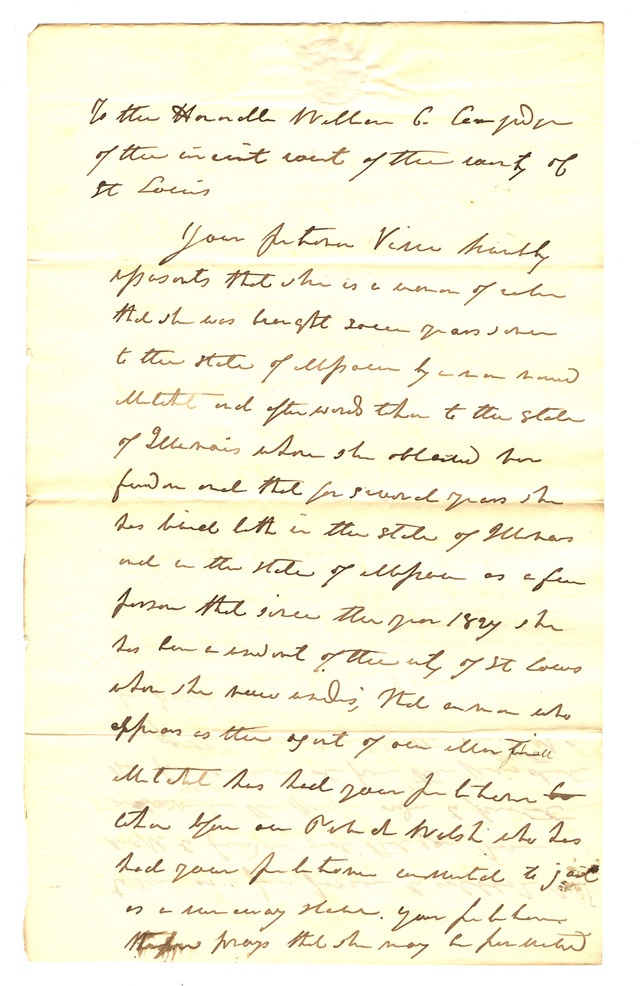 To the Honorable William C. Carr Judge
of the circuit court of the county of
St Louis
Your petitioner Vina humbly
represents that she is a woman of color
that she was brought some years since
to the state of Missouri by a man named
Mitchel and afterwards then to the state
of Illinois where she obtained her
freedom and that for several years she
has lived both in the state of Illinois
and in the state of Missouri as a free
person that since the year 1827 she
has been a resident of the city of St Louis
where she now resides, that a man who
appears as the agent of one Martin
Mitchel has had your petitioner
taken before one Patrick Walsh who has
had your petitioner committed to jail
as a runaway slave. your petitioner
therefore prays that she may be permitted